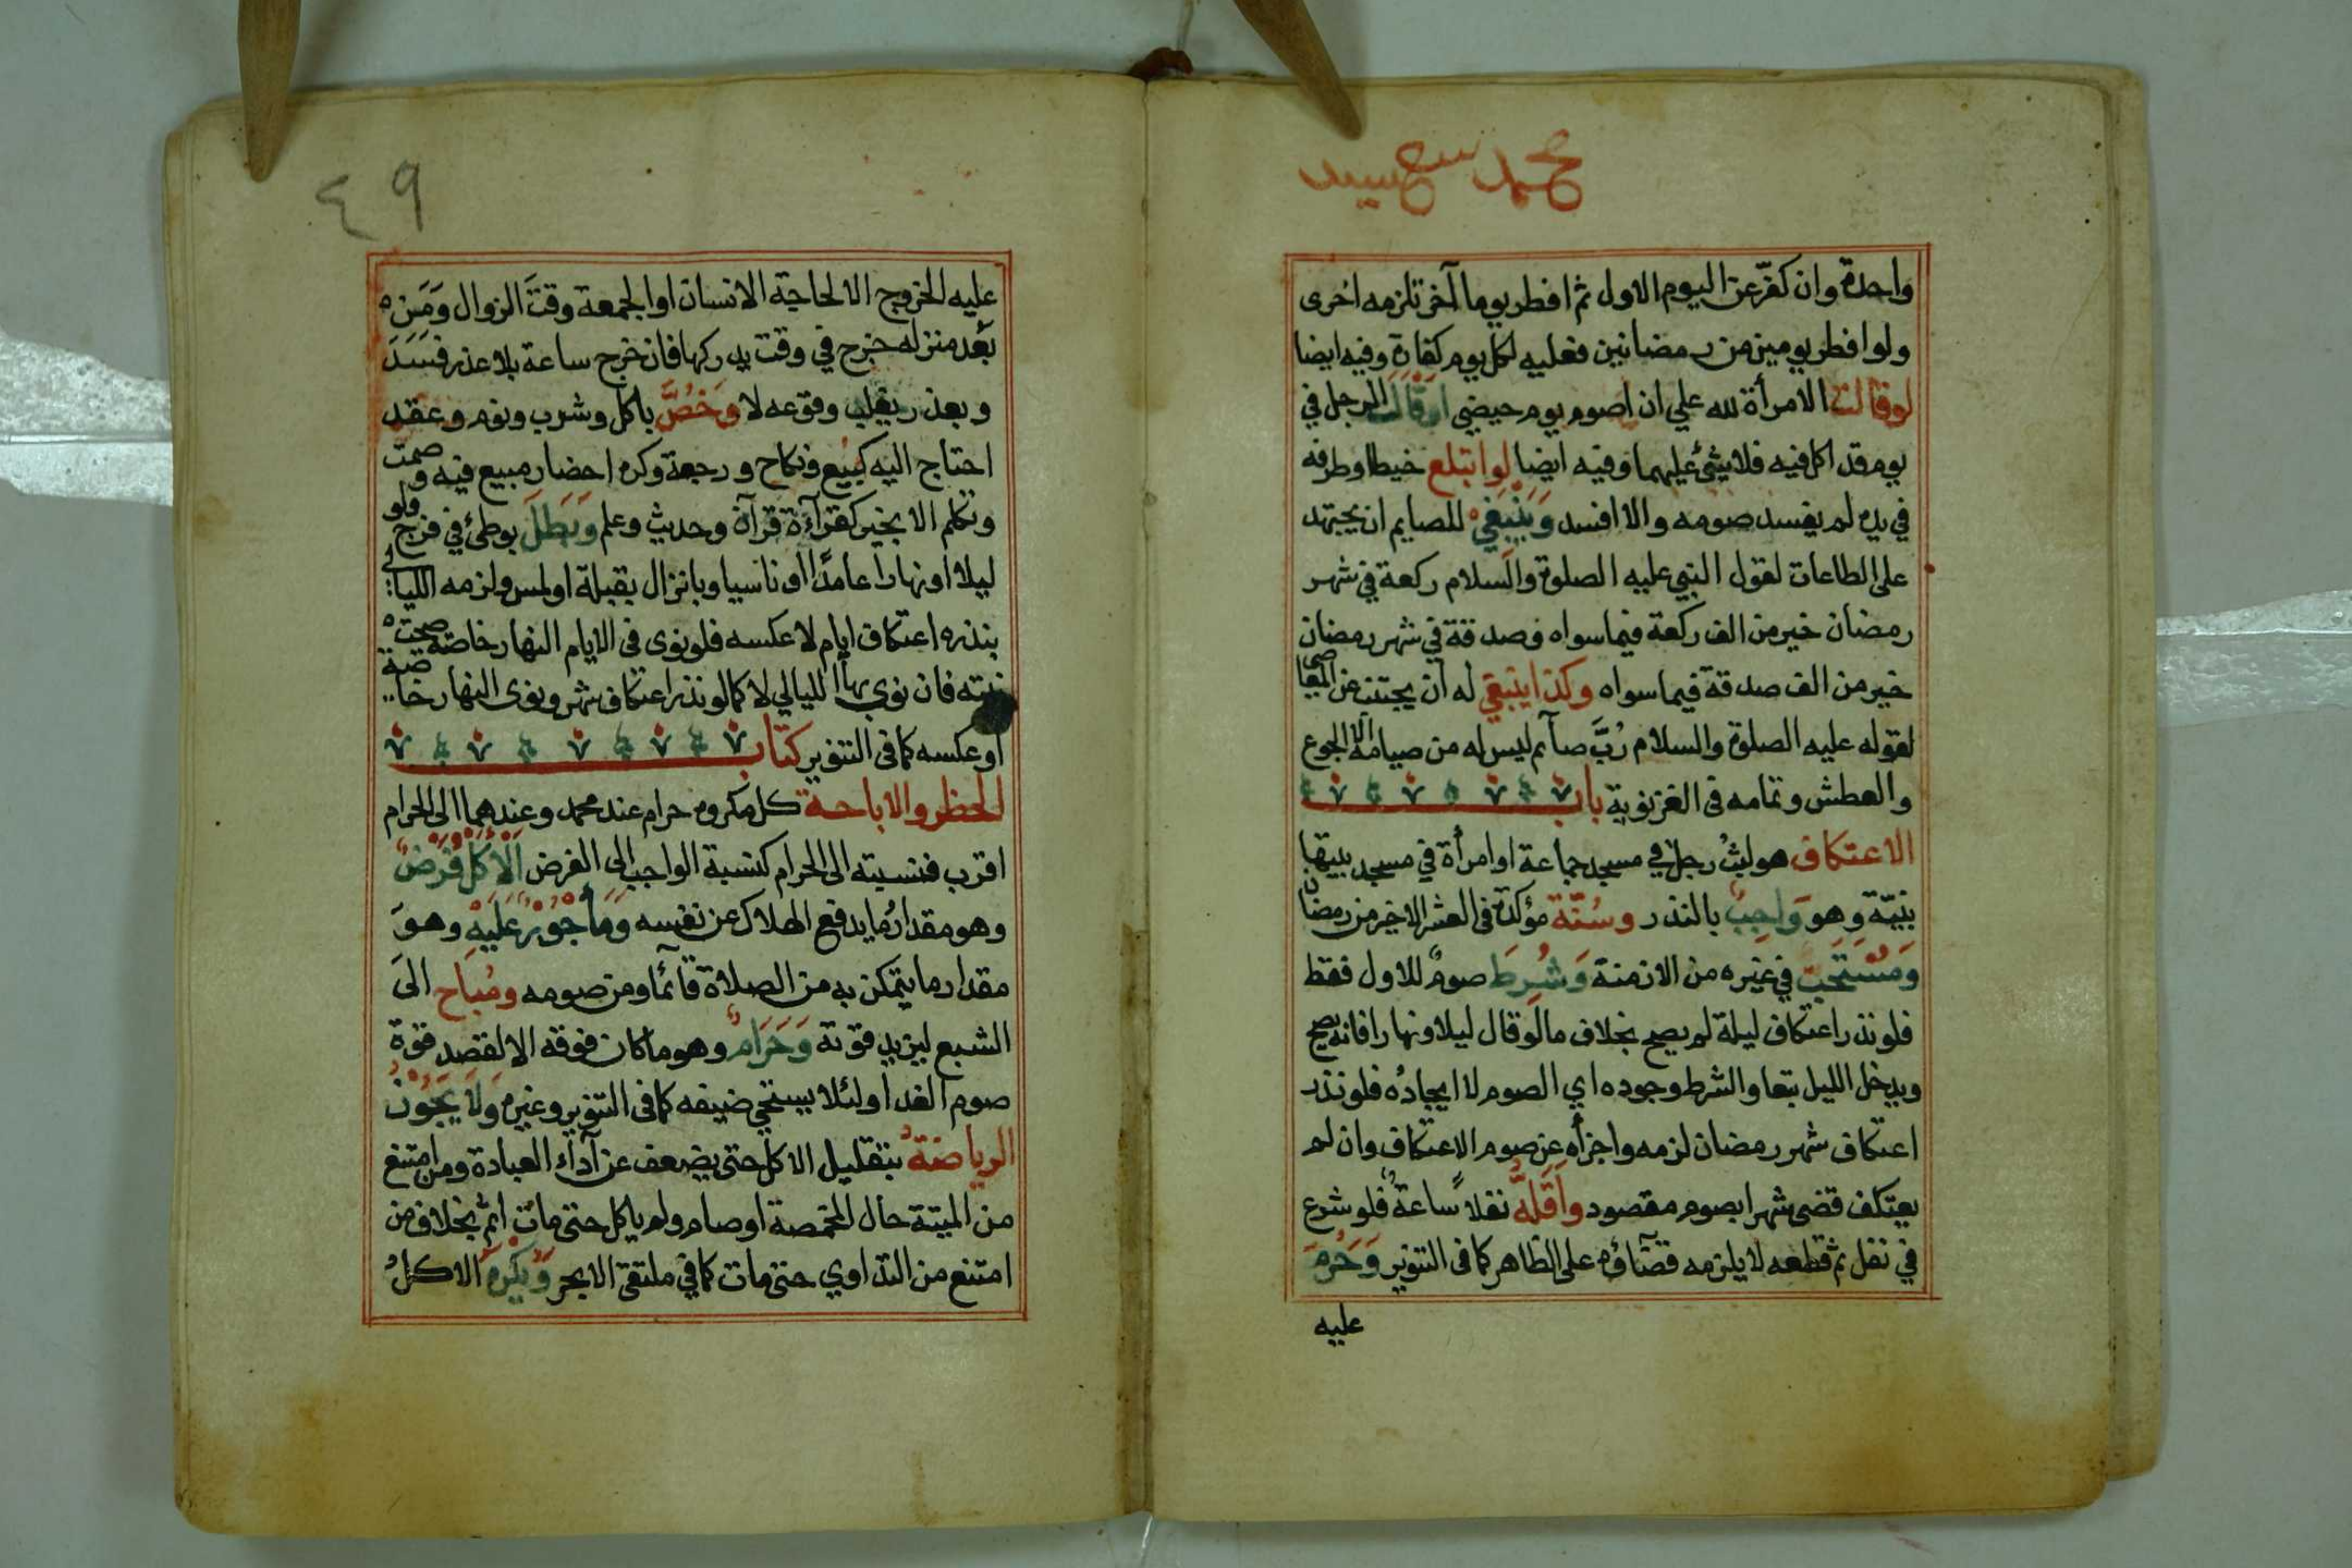 محمد سعيد
واحدة وان كفّر عن اليوم الاول ثم افطر يوما آخر تلزمه اخرى
ولو افطر يومين من رمضانين فعليه لكل يوم كفارة وفيه ايضا
لو قالت الامرأة لله علي ان اصوم يوم حيضي او قالَ الرجل في
يوم قد اكل فيه فلا شئ عليهما وفيه ايضا لو ابتلع خيطا وطرفه
في يده لم يفسد صومه والا افسد وَيَنْبَغي للصايم ان يجتهد
على الطاعات لقول النبي عليه الصلوة والسلام ركعة في شهر
رمضان خير من الف ركعة فيما سواه وصدقة في شهر رمضان
خير من الف صدقة فيما سواه وكذا ينبغي له ان يجتنب عن المعاصى
لقوله عليه الصلوة والسلام رُبَّ صآئم ليس له من صيامه الا الجوع
والعطش وتمامه في الغزنوية باب
الاعتكاف هو لبثُ رجل في مسجد جماعة او امرأة في مسجد بيتها
بنيّة وهو وَاجِبٌ بالنذر وسُنّة مؤكدة في العشر الاخير من رمضان
وَمُسْتَحَبٌ في غيره من الازمنة وَشُرِطَ صومٌ للاول فقط
فلو نذر اعتكاف ليلة لم يصح بخلاف ما لو قال ليلا ونهارا فانه يصح
ويدخل الليل تبعا والشرط وجوده اي الصوم لا ايجادُه فلو نذر
اعتكاف شهر رمضان لزمه واجزأه عن صوم الاعتكاف وان لم
يعتكف قضى شهرا بصوم مقصود وَاَقَلُّهُ نفلاً ساعةٌ فلو شرع
في نفل ثم قطعه لا يلزمه قضآؤه على الظاهر كما في التنوير وَحَرُمَ
عليه
٤٩
عليه الخروج الا لحاجة الانسان او الجمعة وقتَ الزوال وَمَن
بَعُد منزله خرج في وقت يدركها فان خرج ساعة بلا عذر فسَدَ
وبعذر يغلب وقوعه لا وَخُصَّ باكل وشرب ونوم وعقد
احتاج اليه كبَيع ونكاح ورجعة وكره احضار مبيع فيه وصمت
وتكلم الا بخير كقرآءة قرآن وحديث وعلم وَبَطَلَ بوطئ في فرج ولو
ليلا او نهارا عامدًا او ناسيا وبانزال بقبلة او لمس ولزمه الليالى
بنذره اعتكاف ايام لا عكسه فلو نوى في الايام النهار خاصة صحت
نيته فان نوى بها الليالي لا كما لو نذر اعتكاف شهر ونوى النهار خاصة
او عكسه كما في التنوير كتاب
الحظر والاباحة كل مكروه حرام عند محمد وعندهما الى الحرام
اقرب فنسبته الى الحرام كنسبة الواجب الى الفرض اَلْاَكْلُ فَرْضٌ
وهو مقدارُ ما يدفع الهلاك عن نفسه وَمَأْجُوْرٌ عَلَيْهِ وهوَ
مقدار ما يتمكن به من الصلاة قآئما ومن صومه ومُبَاح الىَ
الشبع ليزيد قوته وَحَرَامٌ وهو ما كان فوقه الا لقصد قوة
صوم الغد او لئلا يستحي ضيفه كما في التنوير وغيره وَلَا يَجُوْزُ
الرياضة بتقليل الاكل حتى يضعف عن آداء العبادة ومن امتنع
من الميتة حال المخمصة او صام ولم ياكل حتى مات اثم بخلاف من
امتنع من التداوي حتى مات كما في ملتقى الابحر وَيُكْرَه الاكلُ